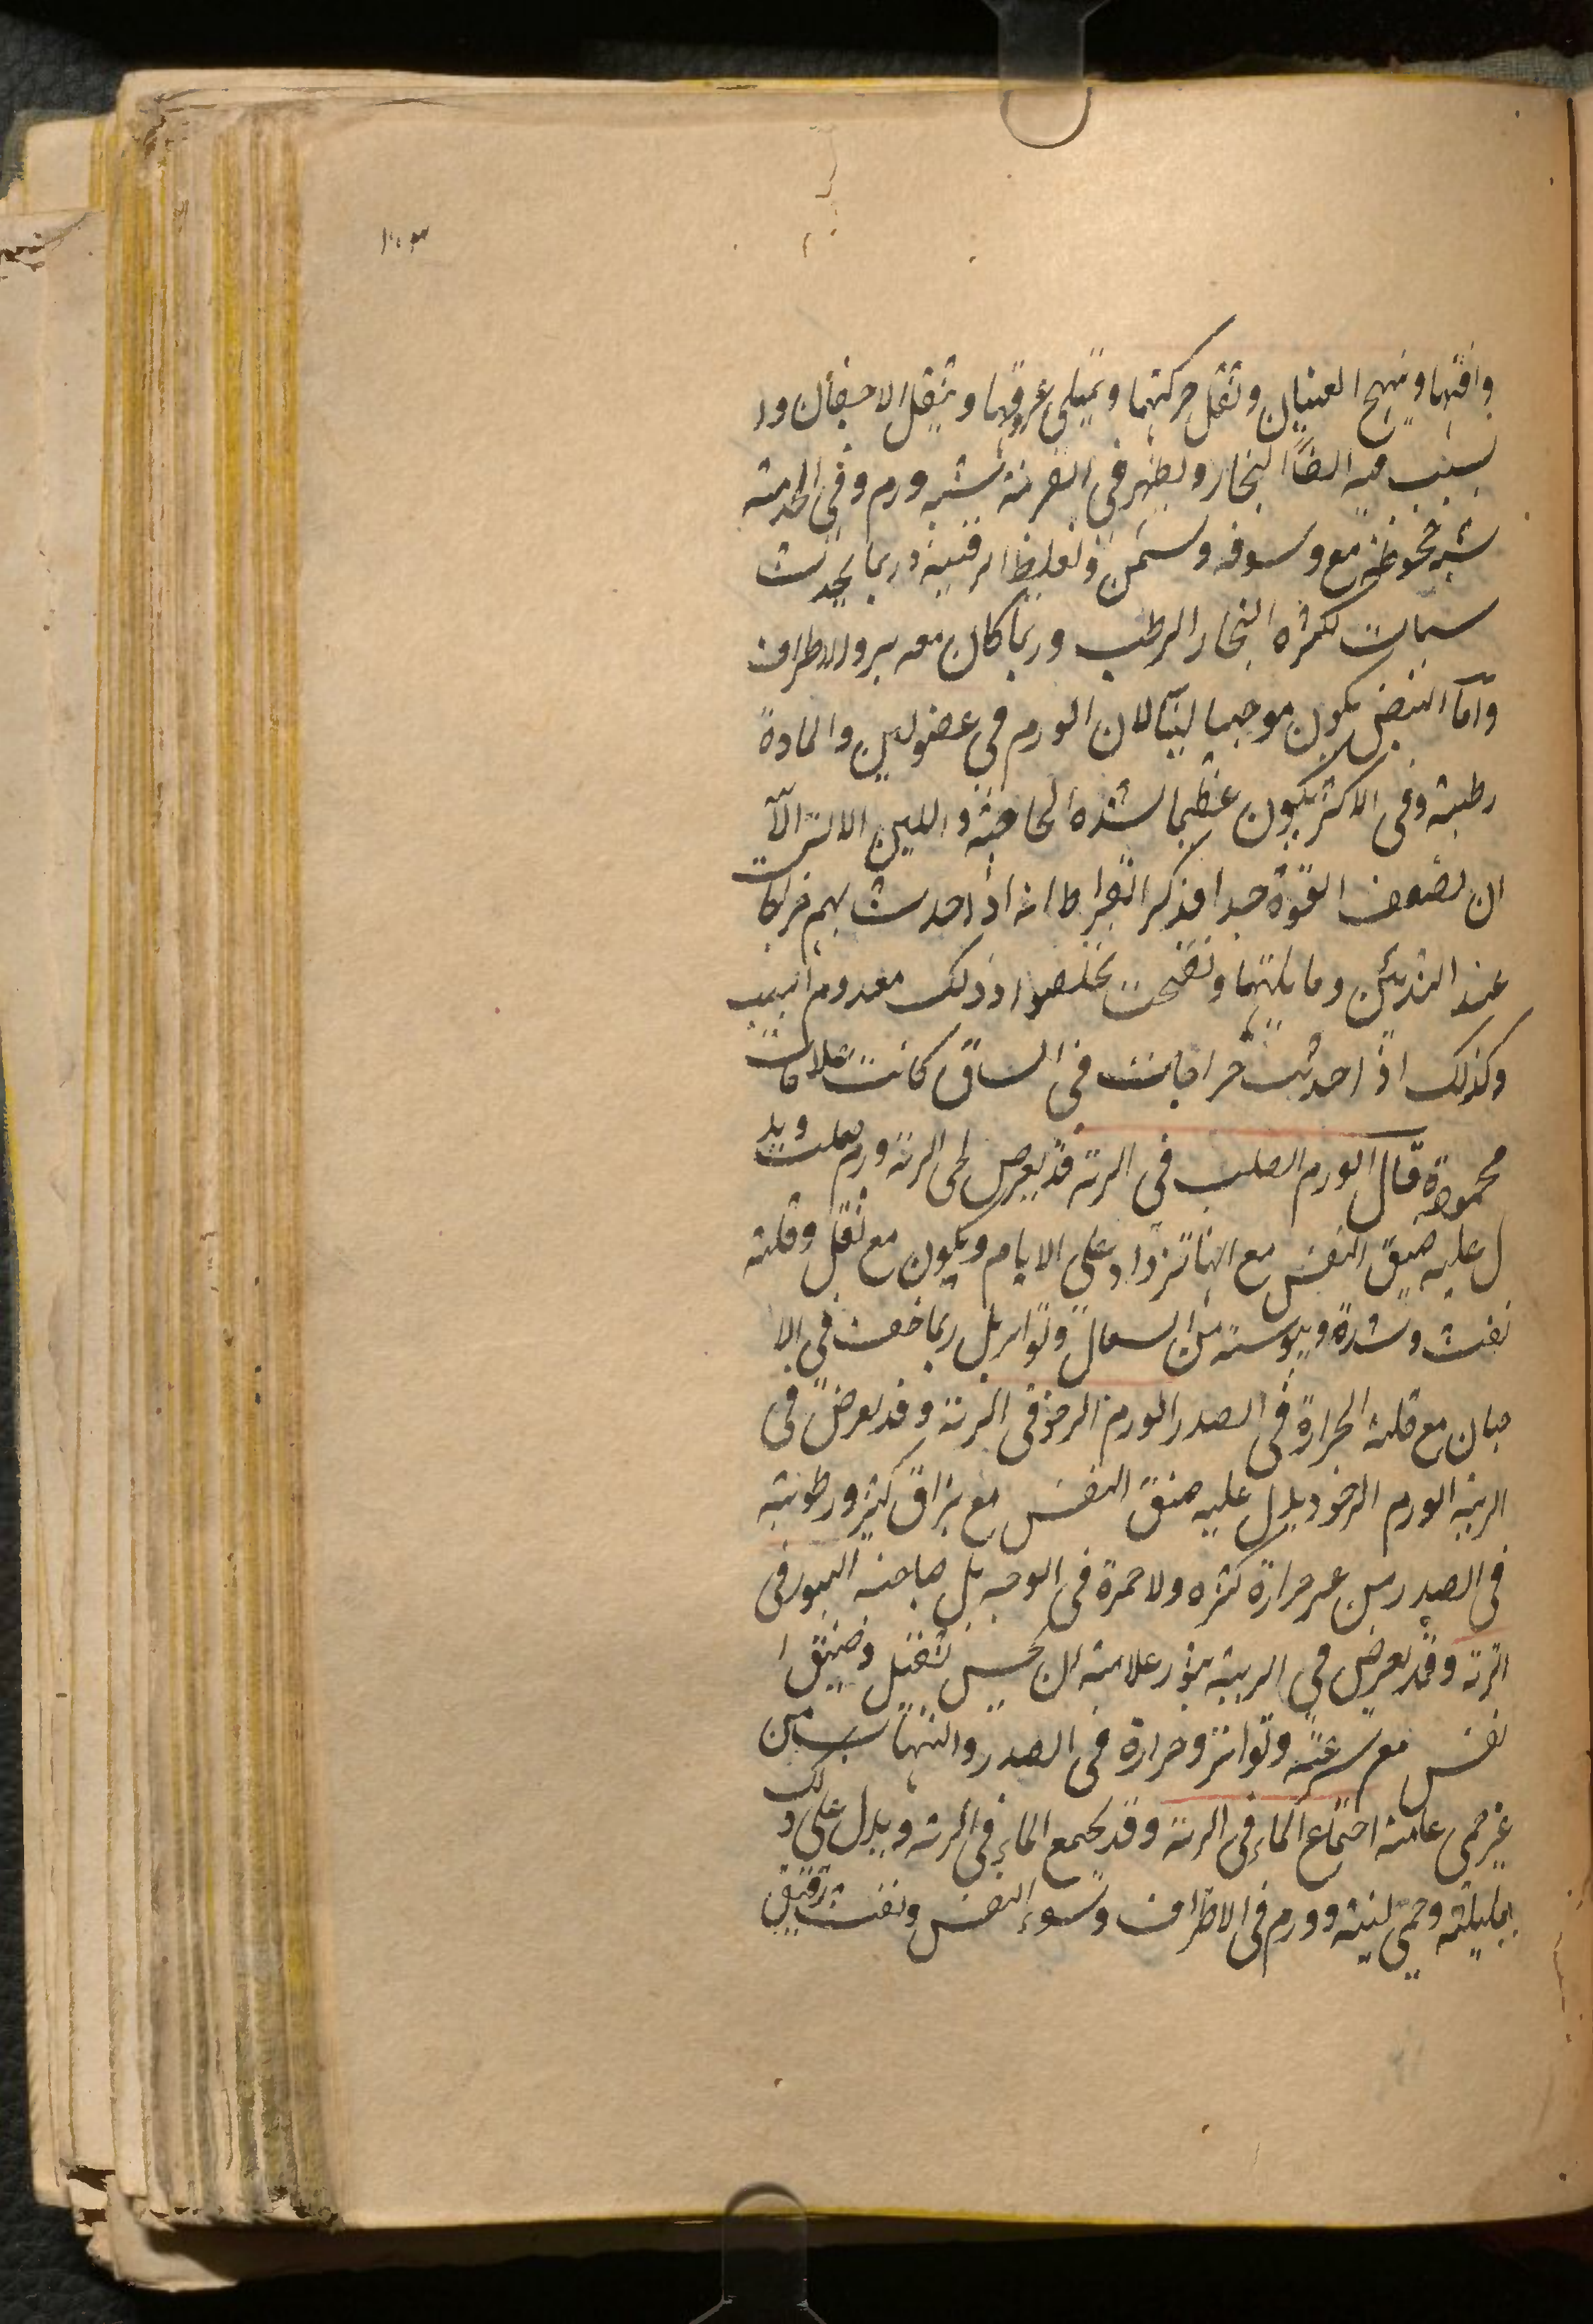 ١٠٣
وافتهما ويتهيج العينان وتثقل حركتهما ويمتلى عروقهما ويثقل الاجفان وا
لسبب فيه ايضاً البخار ويظهر في القرنية شبه ورم وفي الحدقة
شبه جحوظ مع وسومة وسمن وتغليظ الرقبة وربما يحدث
سبات لكثرة البخار الرطب وربما كان معه برد الاطراف
وأما النبض يكون موجيا لينا لان الورم في عضو لين والمادة
رطبة وفي الاكثر يكون عظيما لشدة الحاجة واللين الآلة الا
ان تضعف القوة جدا فذكر ابقراط انه اذا حدث بهم خراجات
عند الثديين وما يليهما ونضجت تخلصوا وذلك معدوم السبب
وكذلك اذا حدثت خراجات في الساق كانت علامات
محمودة قال الورم الصلب في الرئة قد يعرض لحمى الرئة ورم صلب ويد
ل عليه ضيق النفس مع انها تزداد على الايام ويكون مع ثقل وقلة
نفث وشدة ويبوسة من السعال وتواتر بل ربما خفت في الا
حيان مع قلة الحرارة في الصدر الورم الرخو في الرئة وقد يعرض في
الرئة الورم الرخو ويدل عليه ضيق النفس مع بزاق كثير ورطوبة
في الصدر من غير حرارة كثيرة ولا حمرة في الوجه بل صاحبه البثور في
الرئة وقد يعرض في الرية بثور علامته ان يحس ثقيل وضيق ا
نفس مع سرعة وتواتر وحرارة في الصدر والتهاب من
غير حمى عامة اجتماع الماء في الرئة وقد يجتمع الماء في الرئة ويدل على ذلك
بليلة وحمى لينة وورم في الاطراف وسوء النفس ونفث رقيق